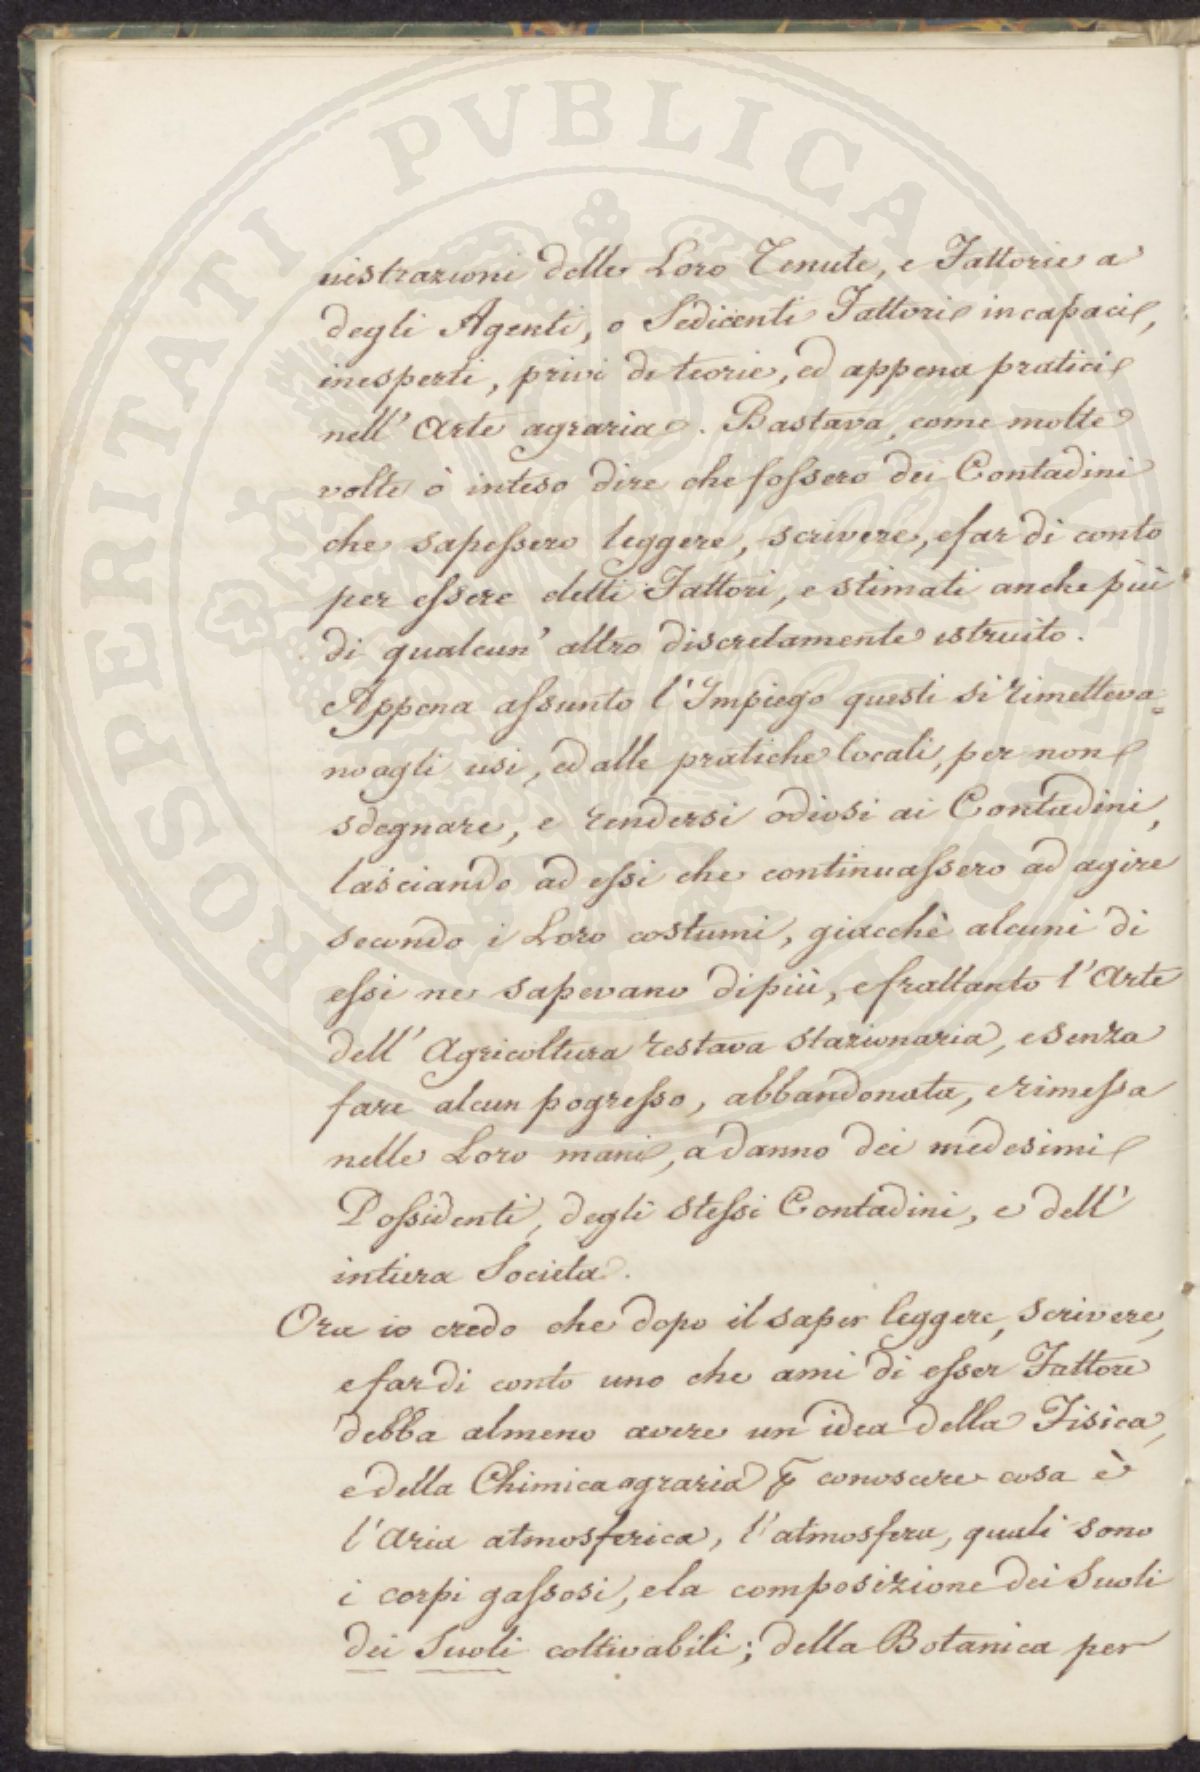 PROSPERITATI PVBLICAE AVGENDAE
nistrazioni delle Loro Tenute, e Fattorie a
degli Agenti, o Sedicenti Fattori incapaci,
inesperti, privi di teorie, ed appena pratici
nell' Arte agraria. Bastava, come molte
volte ò inteso dire che fossero dei Contadini
che sapessero leggere, scrivere, e far di conto
per essere detti Fattori, e stimati anche più
di qualcun' altro discretamente istruito.
Appena assunto l'Impiego questi si rimetteva=
no agli usi, ed alle pratiche locali, per non
sdegnare, e rendersi odiosi ai Contadini,
lasciando ad essi che continuassero ad agire
secondo i Loro costumi, giacchè alcuni di
essi ne sapevano di più, e frattanto l'Arte
dell' Agricoltura restava stazionaria, e senza
fare alcun pogresso, abbandonata, e rimessa
nelle Loro mani, a danno dei medesimi
Possidenti, degli stessi Contadini, e dell'
intiera Societa.
Ora io credo che dopo il saper leggere, scrivere,
e far di conto uno che ami di esser Fattore
debba almeno avere un' idea della Fisica,
e della Chimica agraria p conoscere cosa è
l'Aria atmosferica, l'atmosfera, quali sono
i corpi gassosi, e la composizione dei Suoli
dei Suoli coltivabili; della Botanica per